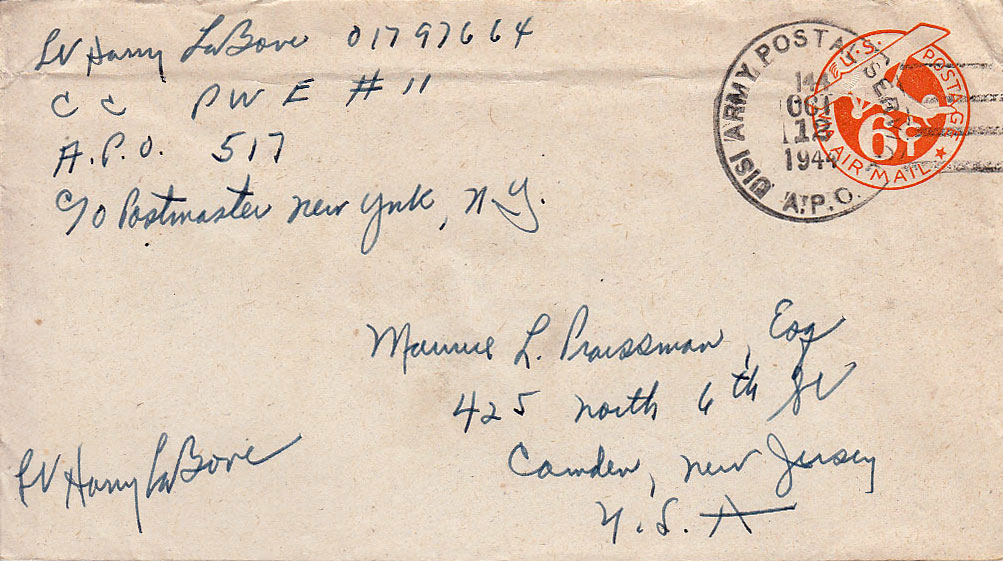 Lt Harry LaBove 01797664
C C PWE #11
A.P.O. 517
c/o Postmaster New York, N.Y.
U.S. ARMY POSTAL SERVICE
144
OCT
12
1944
A.P.O.
U.S. POSTAGE
6¢
VIA AIR MAIL
L. Praissman, Esq
425 North 6th St
Camden, New Jersey
U.S.A
Lt Harry LaBove